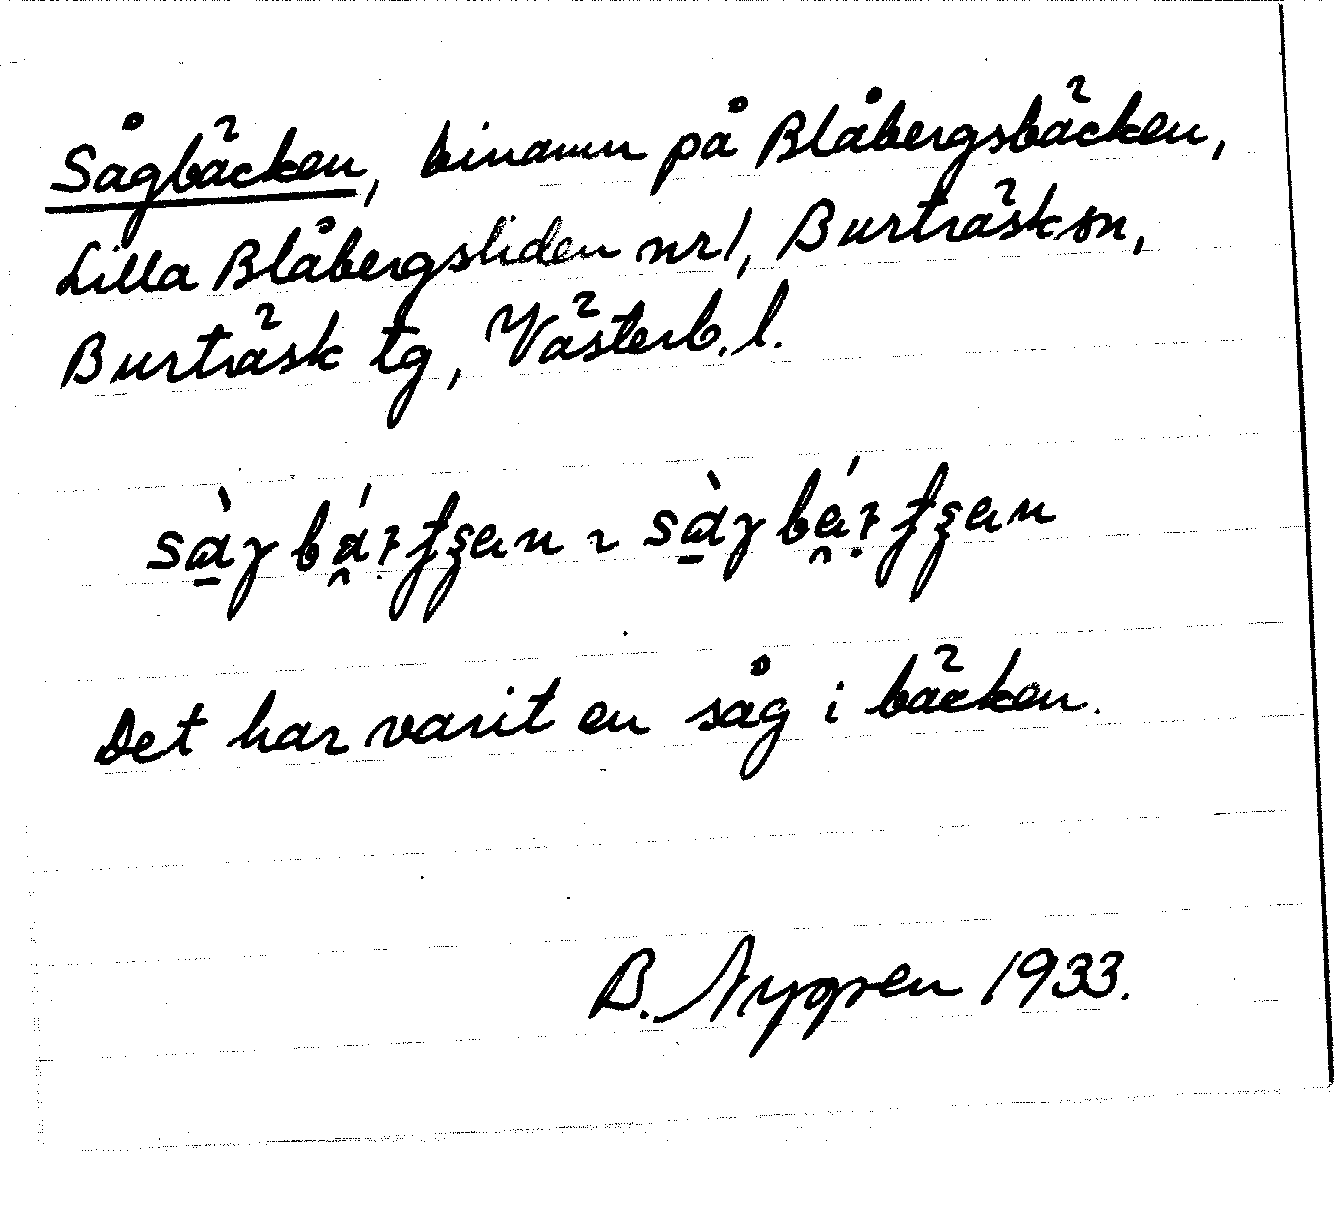 Sågbäcken, binamn på Blåbergsbäcken,
Lilla Blåbergsliden nr 1, Burträsk sn,
Burträsk tg, Västerb. l.
Det har varit en såg i bäcken.
B. Nygren 1933.